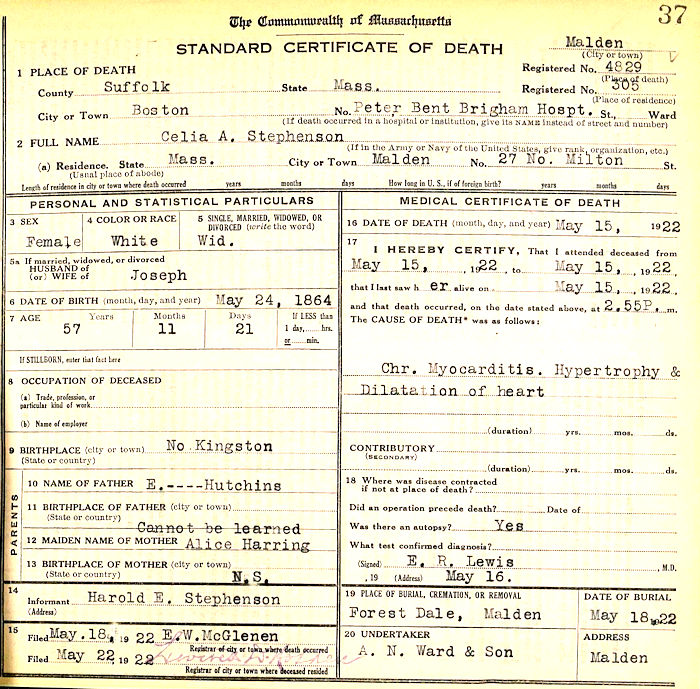 37
The Commonwealth of Massachusetts
STANDARD CERTIFICATE OF DEATH
Malden
(City or town)
1 PLACE OF DEATH
Registered No. 4829
(Place of death)
County Suffolk State Mass.
Registered No. 305
(Place of residence)
City or Town Boston No. Peter Bent Brigham Hospt. St., Ward
(If death occurred in a hospital or institution, give its NAME instead of street and number)
2 FULL NAME Celia A. Stephenson
(If in the Army or Navy of the United States, give rank, organization, etc.)
(a) Residence. State Mass. City or Town Malden No. 27 No. Milton St.
(Usual place of abode)
Length of residence in city or town where death occurred years months days How long in U. S., if of foreign birth? years months days
PERSONAL AND STATISTICAL PARTICULARS
3 SEX
Female
4 COLOR OR RACE
White
5 SINGLE, MARRIED, WIDOWED, OR
DIVORCED (write the word)
Wid.
5a If married, widowed, or divorced
HUSBAND of
(or) WIFE of Joseph
6 DATE OF BIRTH (month, day, and year) May 24, 1864
7 AGE Years Months Days If LESS than
57 11 21 1 day, hrs.
or min.
If STILLBORN, enter that fact here
8 OCCUPATION OF DECEASED
(a) Trade, profession, or
particular kind of work
(b) Name of employer
9 BIRTHPLACE (city or town) No Kingston
(State or country)
PARENTS
10 NAME OF FATHER E.----Hutchins
11 BIRTHPLACE OF FATHER (city or town)
(State or country) Cannot be learned
12 MAIDEN NAME OF MOTHER Alice Harring
13 BIRTHPLACE OF MOTHER (city or town)
(State or country) N.S.
14
Informant Harold E. Stephenson
(Address)
15
Filed May. 18, 1922 E.W.McGlenen
Registrar of city or town where death occurred
Filed May 22, 1922
Registrar of city or town where deceased resided
MEDICAL CERTIFICATE OF DEATH
16 DATE OF DEATH (month, day, and year) May 15, 1922
17
I HEREBY CERTIFY, That I attended deceased from
May 15, 1922, to May 15, 1922,
that I last saw her alive on May 15, 1922,
and that death occurred, on the date stated above, at 2.55P. m.
The CAUSE OF DEATH* was as follows:
Chr. Myocarditis. Hypertrophy &
Dilatation of heart
(duration) yrs. mos. ds.
CONTRIBUTORY
(SECONDARY)
(duration) yrs. mos. ds.
18 Where was disease contracted
if not at place of death?
Did an operation precede death? Date of
Was there an autopsy? Yes
What test confirmed diagnosis?
(Signed) E. R. Lewis, M.D.
, 19 (Address) May 16.
19 PLACE OF BURIAL, CREMATION, OR REMOVAL
Forest Dale, Malden
DATE OF BURIAL
May 18, 1922
20 UNDERTAKER
A. N. Ward & Son
ADDRESS
Malden